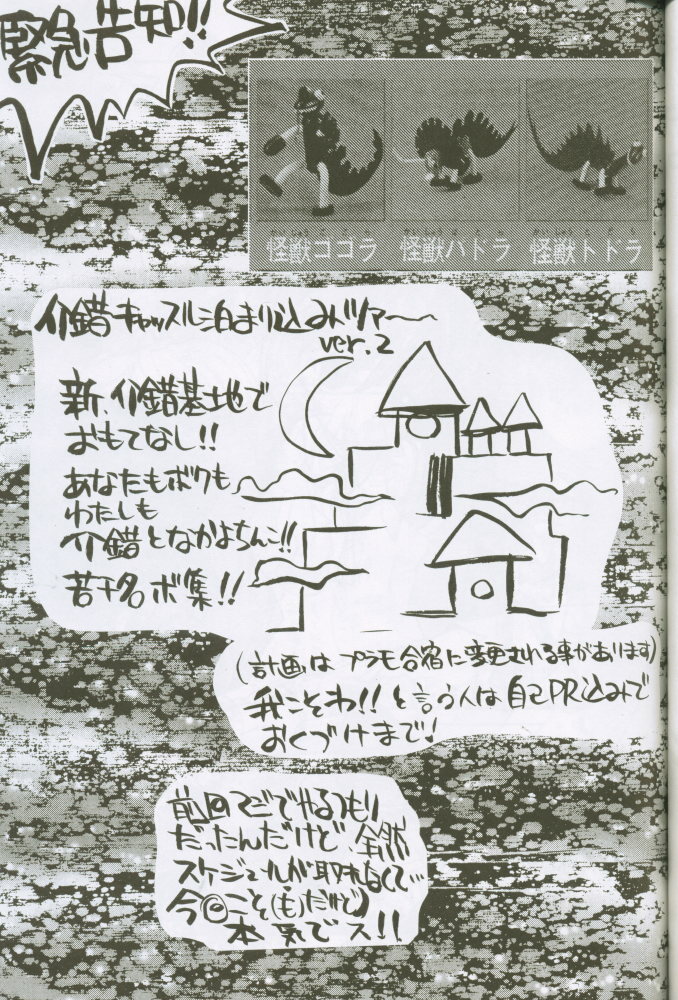 緊急告知!!
怪獣ゴゴラ 怪獣ハドラ 怪獣トドラ
介錯キャッスル泊まり込みツアー〜
ver.2
新、介錯基地で
おもてなし!!
あなたもボクも
わたしも
介錯となかよちんこ!!
若干名ボ集!!
(計画はプラモ合宿に変更される事があります)
我こそわ!!と言う人は自己PR込みで
おくづけまで!
前回マジでやるつもり
だったんだけど、全然
スケジュールが取れなくて…
今回こそ(も)だけど)
本気でス!!